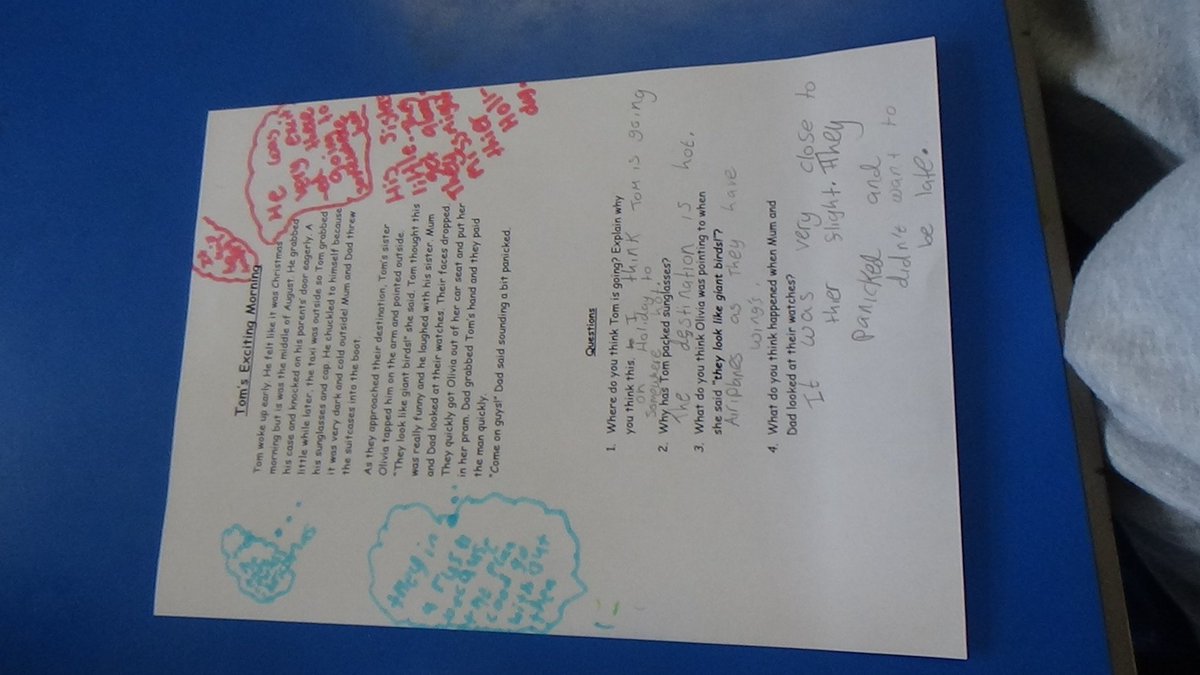 Tom's Exciting Morning
Tom woke up early. He felt like it was Christmas
morning but is was the middle of August. He grabbed
his case and knocked on his parents' door eagerly. A
little while later, the taxi was outside so Tom grabbed
his sunglasses and cap. He chuckled to himself because
it was very dark and cold outside! Mum and Dad threw
the suitcases into the boot.
As they approached their destination, Tom's sister
Olivia tapped him on the arm and pointed outside.
"They look like giant birds!" she said. Tom thought this
was really funny and he laughed with his sister. Mum
and Dad looked at their watches. Their faces dropped.
They quickly got Olivia out of her car seat and put her
in her pram. Dad grabbed Tom's hand and they paid
the man quickly.
"Come on guys!" Dad said sounding a bit panicked.
He was
very
to
going
His sister
little
they in
a rush
with out
Questions
1. Where do you think Tom is going? Explain why
you think this. I think Tom is going
on Holiday to
Somewhere hot.
2. Why has Tom packed sunglasses?
The destination is hot.
3. What do you think Olivia was pointing to when
she said "they look like giant birds!"?
Airiplanes as they have
wing's
4. What do you think happened when Mum and
Dad looked at their watches?
It was very close to
ther flight. They
panicked and
didn't want to
be late.